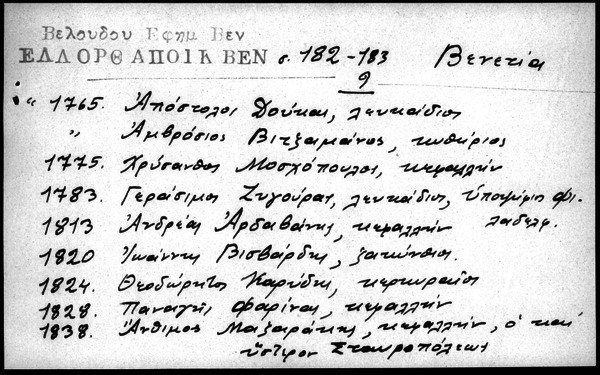 Βελουδου Εφημ Βεν
ΕΛΛΟΡΘ ΑΠΟΙΚ ΒΕΝ σ. 182-183 Βενετία
9
" 1765. Ἀπόστολος Δούκας, λευκάδιος
" Ἀμβρόσιος Βιτζαμάνος, κυθήριος
1775. Χρύσανθος Μοσχόπουλος, κεφαλλήν
1783. Γεράσιμος Ζυγούρας, λευκάδιος, ὑποψήφιος Φι-
λαδελφ.
1813 Ἀνδρέας Ἀρδαβάνης, κεφαλλήν
1820 Ἰωάννης Βισβάρδης, ζακύνθιος.
1824. Θεοδώρητος Καρύδης, κερκυραῖος
1828. Παναγῆς Φαρίνας, κεφαλλήν
1838. Ἄνθιμος Μαζαράκης, κεφαλλήν, ὁ καί
ὕστερον Σταυροπόλεως